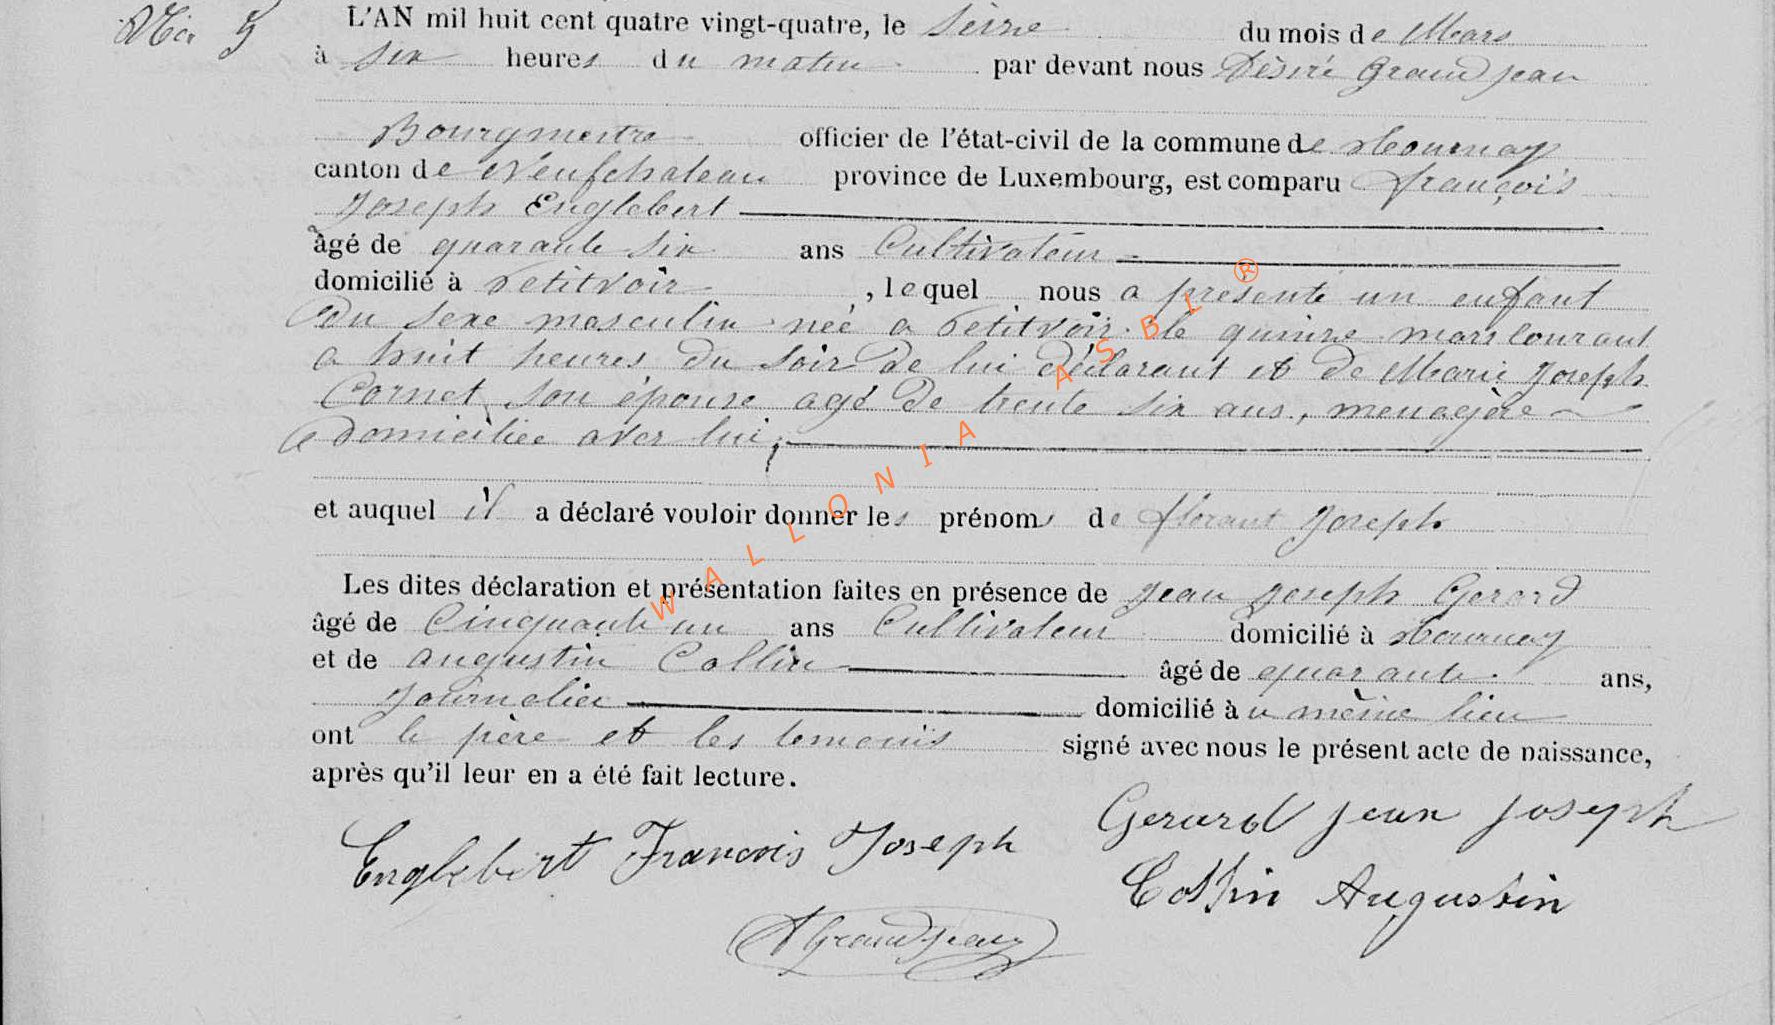 No 5
L'AN mil huit cent quatre vingt-quatre, le seize du mois de Mars
à six heures du matin par devant nous Désiré Grandjean
Bourgmestre officier de l'état-civil de la commune de Tournay
canton de Neufchateau province de Luxembourg, est comparu françois
Joseph Englebert
âgé de quarante six ans Cultivateur
domicilié à Petitvoir, lequel nous a présenté un enfant
du sexe masculin née a Petitvoir le quinze mars courant
a huit heures du soir de lui déclarant et de Marie Joseph
Cornet son épouse agé de trente six ans, menagère
domiciliee avec lui;
et auquel il a déclaré vouloir donner les prénoms de Joseph
Les dites déclaration et présentation faites en présence de Jean Joseph Gerard
âgé de Cinquante un ans Cultivateur domicilié à Tournay
et de augustin Collin âgé de quarante ans,
Journalier domicilié à u même lieu
ont le père et les temoins signé avec nous le présent acte de naissance,
après qu'il leur en a été fait lecture.
Englebert Francois Joseph
Gerard Jean Joseph
Collin Augustin
Grandjean
WALLONIA ASBL ®